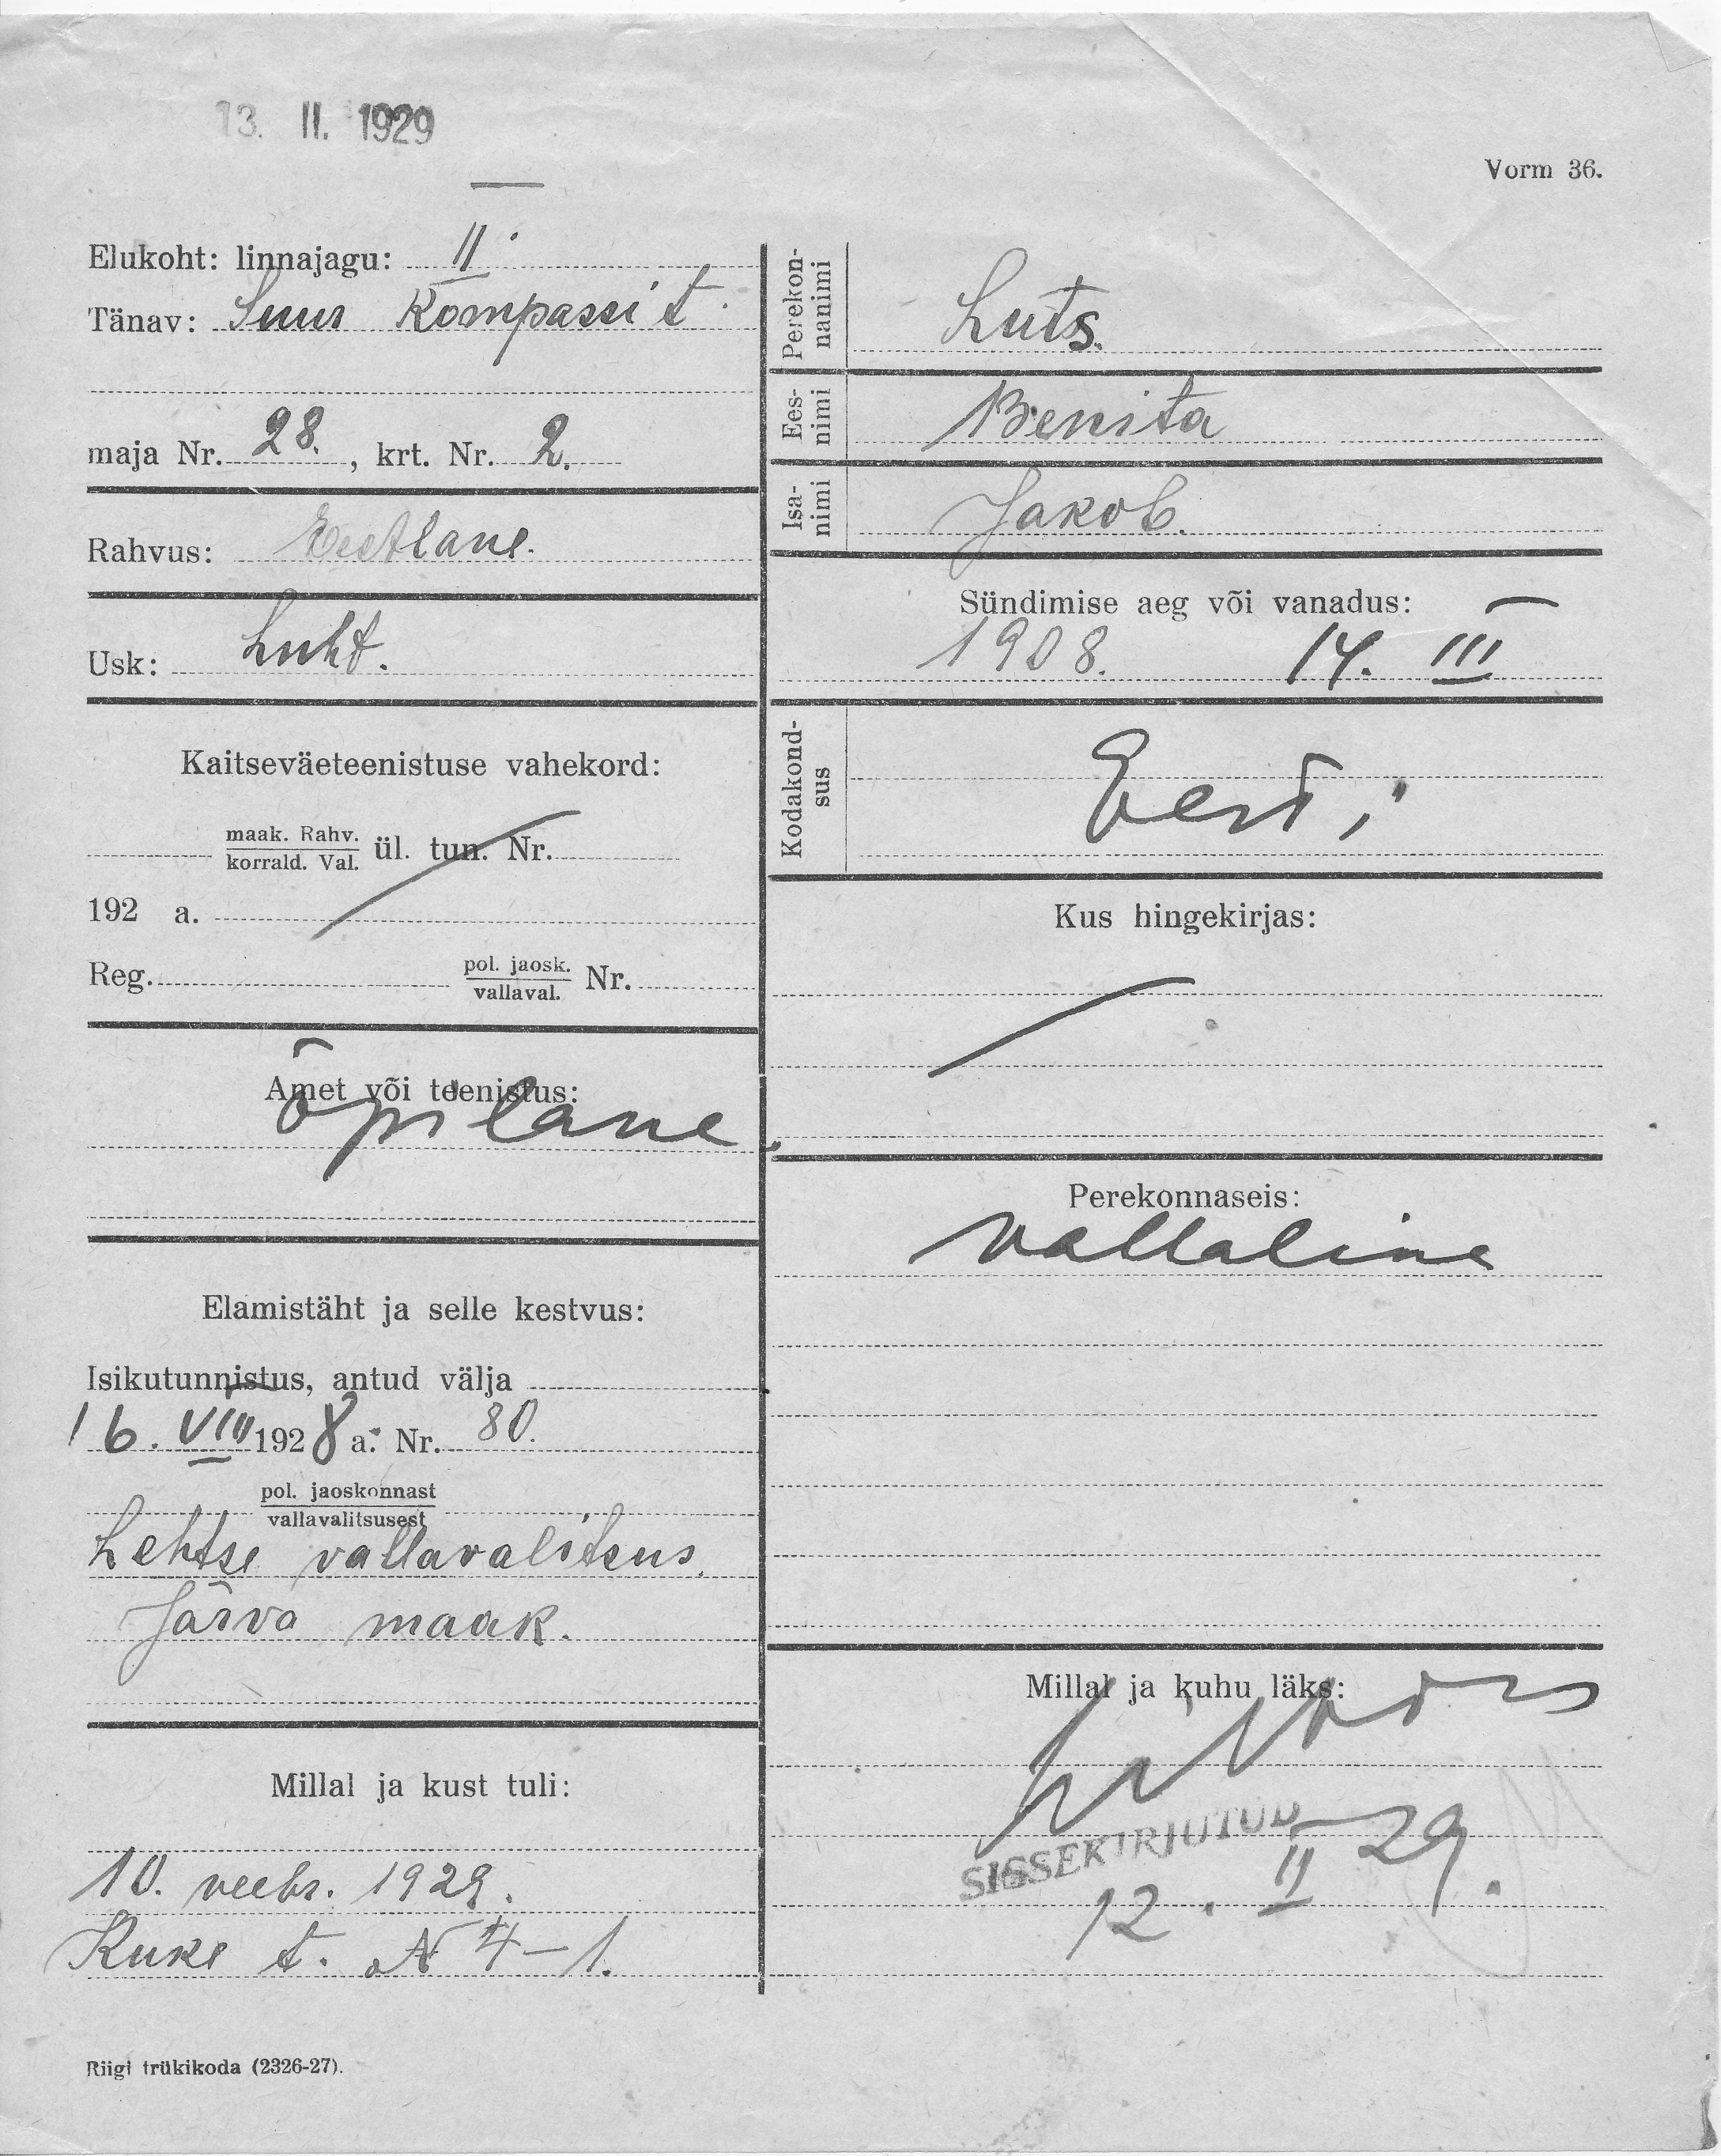 13. II. 1929
Vorm 36.
Elukoht: linnajagu: II.
Tänav: Suur Kompassi t.
maja Nr. 28. , krt. Nr. 2.
Rahvus: Eestlane.
Usk: Luht.
Kaitseväeteenistuse vahekord:
maak. Rahv.
korrald. Val. ül. tun. Nr.
192 a.
Reg. pol. jaosk. Nr.
vallaval.
Amet või teenistus:
õpilane.
Elamistäht ja selle kestvus:
Isikutunnistus, antud välja
16. VIII 1928 a. Nr. 80.
pol. jaoskonnast
vallavalitsusest
Lehtse vallavalitsus.
Järva maak.
Millal ja kust tuli:
10. veebr. 1929.
Kuke t. N 4-1.
Riigi trükikoda (2326-27).
Perekon-
nanimi Luts.
Ees-
nimi Benita
Isa-
nimi Jakob.
Sündimise aeg või vanadus:
1908. 14. III
Kodakond-
sus Eesti
Kus hingekirjas:
Perekonnaseis:
vallaline
Millal ja kuhu läks:
SISSEKIRJUTUD
12. II 29.